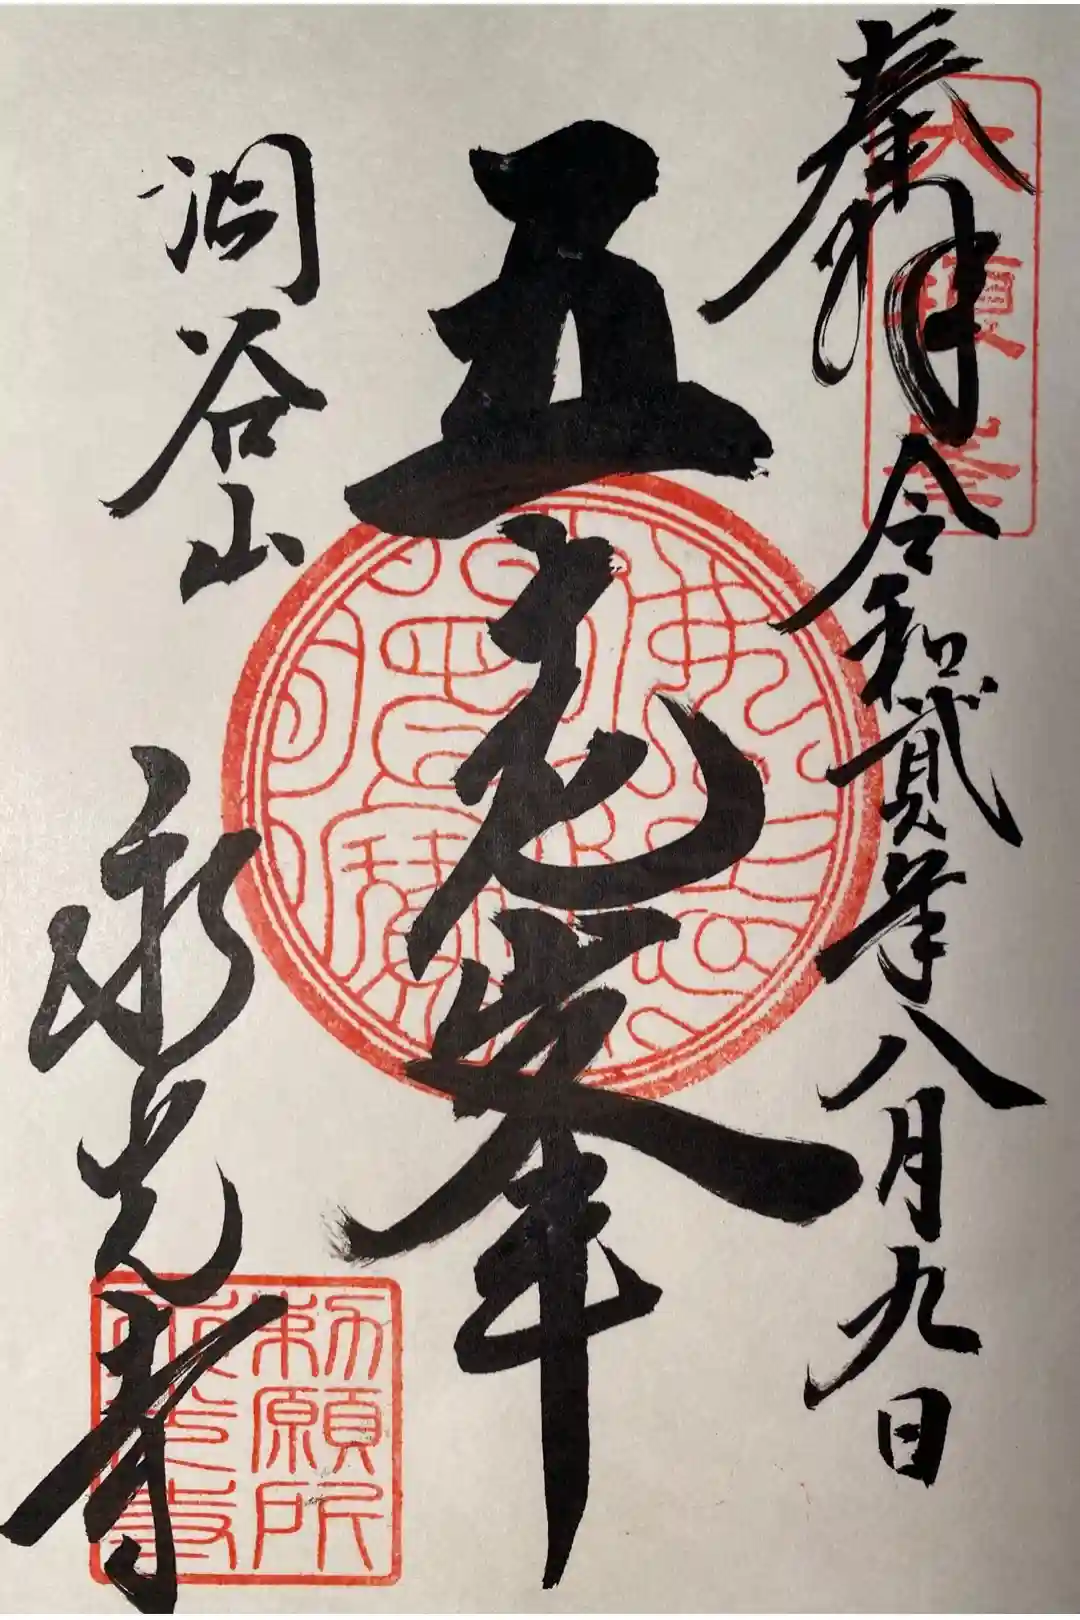 奉拝 令和貳年八月九日
五老峯
洞谷山 永光寺
勅願所
永光寺